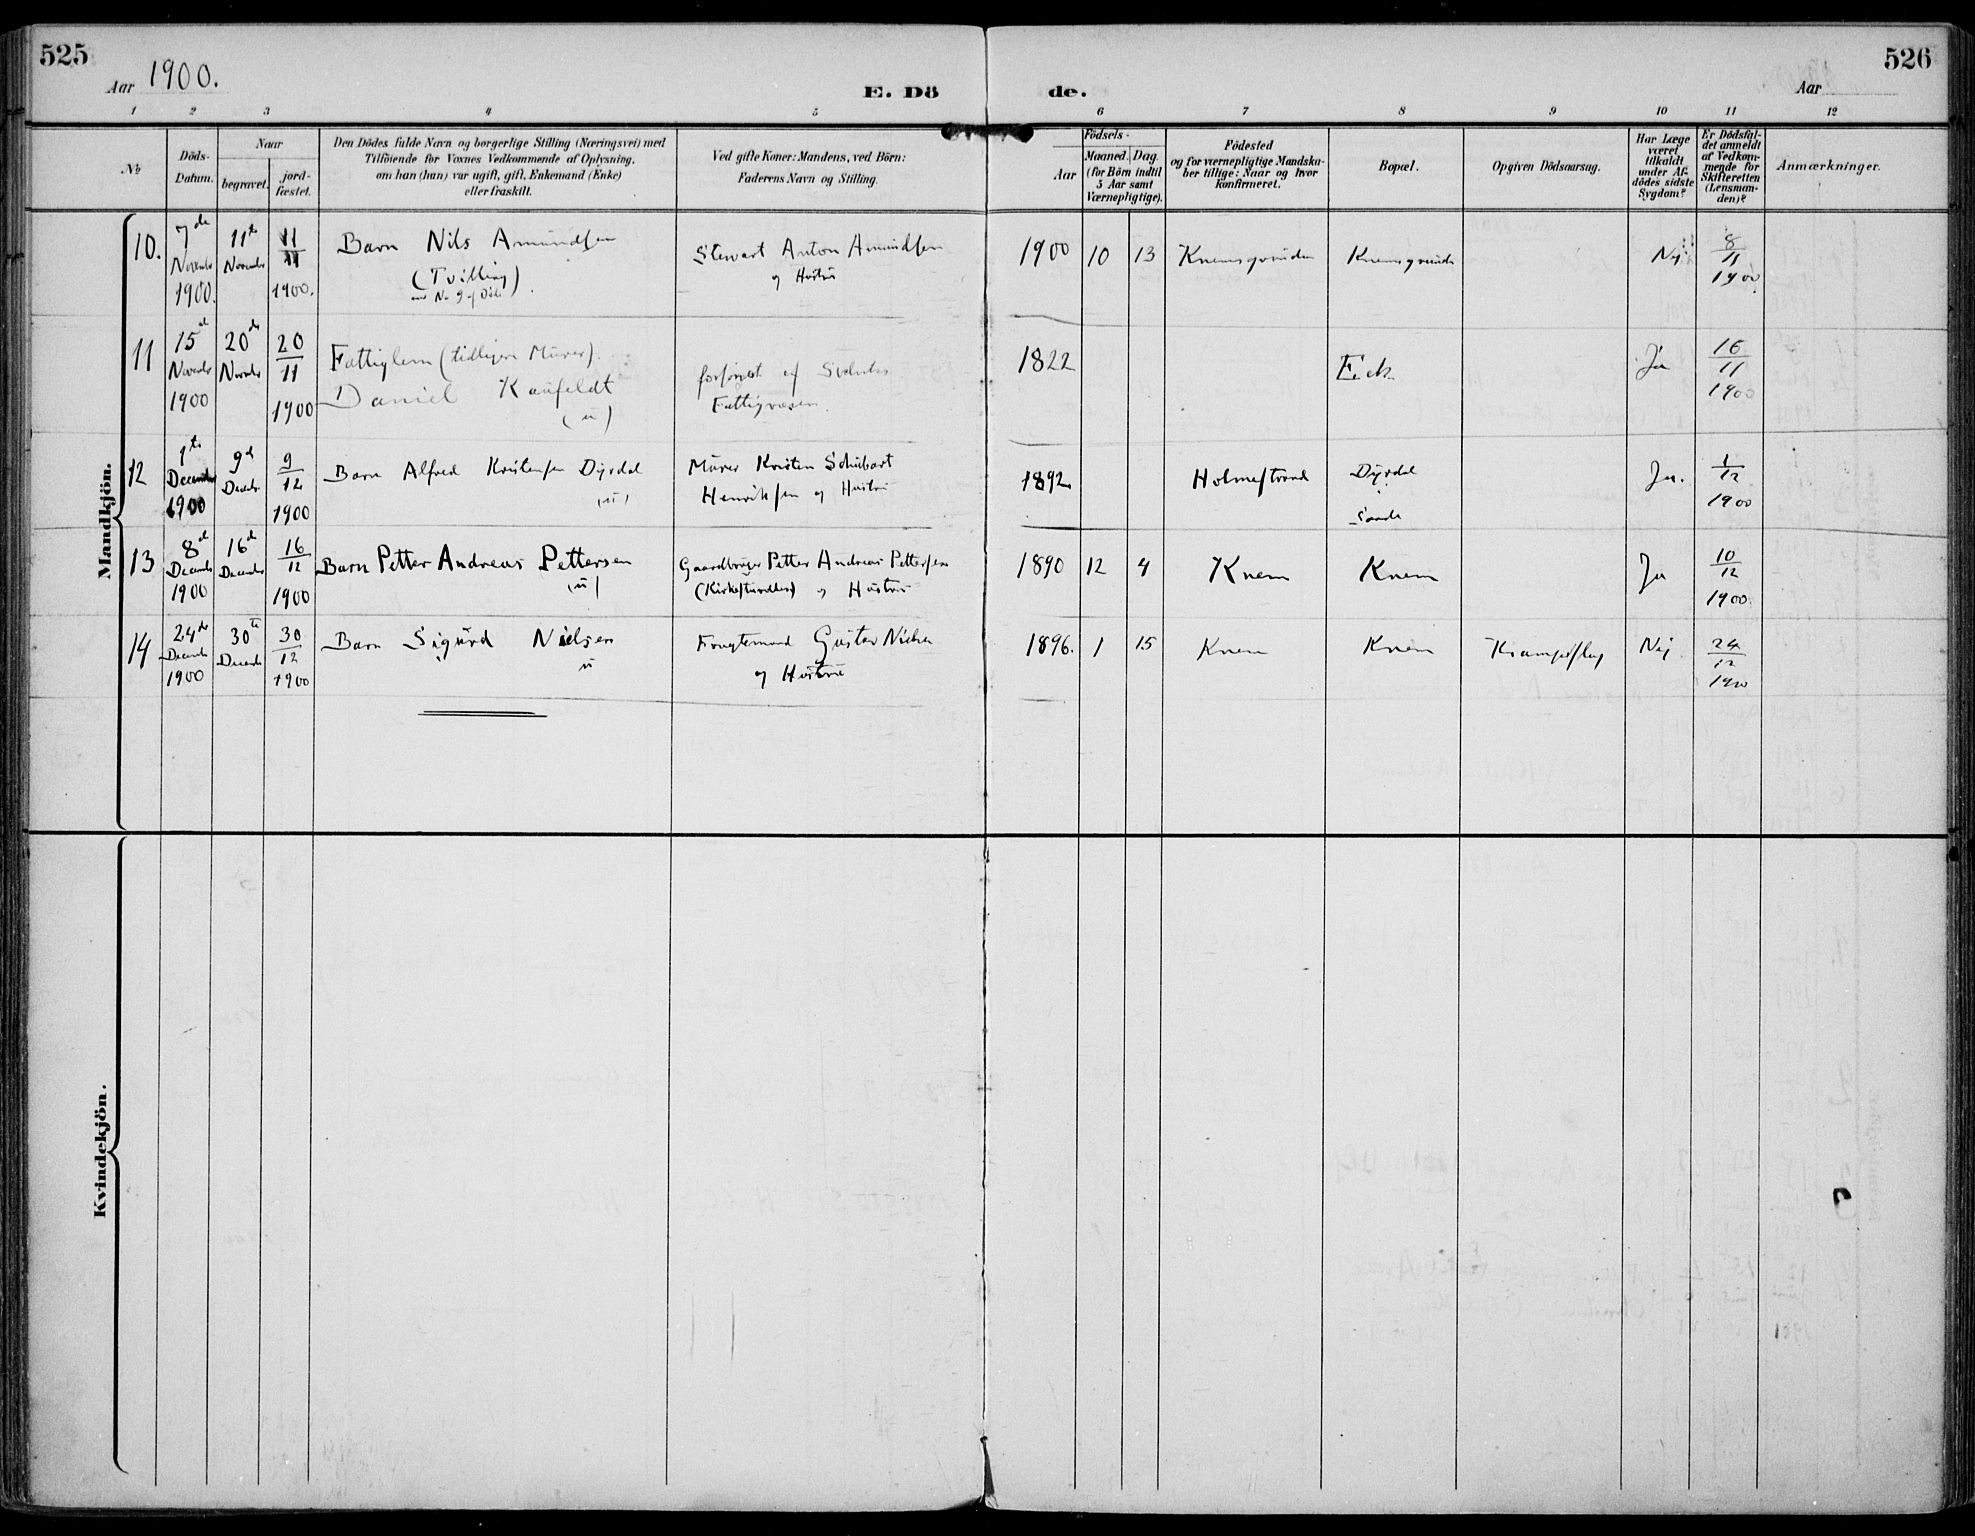 525
Aar 1900.
E. Dö
de.
526
Aar
1 2 3 4 5 6 7 8 9 10 11 12
No
Döds-
Datum.
Naar
begravet.
jord-
fæstet.
Den Dödes fulde Navn og borgerlige Stilling (Næringsvei) med
Tilföiende for Voxnes Vedkommende af Oplysning,
om han (hun) var ugift, gift, Enkemand (Enke)
eller fraskilt.
Ved gifte Koner: Mandens, ved Börn:
Faderens Navn og Stilling.
Födsels-
Aar
Maaned.
Dag.
(for Börn indtil
5 Aar samt
Værnepligtige).
Födested
og for værnepligtige Mandska-
ber tillige: Naar og hvor
konfirmeret.
Bopæl.
Opgiven Dödsaarsag.
Har Læge
været
tilkaldt
under Af-
dödes sidste
Sygdom?
Er Dödsfal-
det anmeldt
af Vedkom-
mende for
Skifteretten
(Lensman-
den)?
Anmærkninger.
Mandkjön.
10.
7de
November
1900.
11te
November
11
11
1900.
Barn Nils Amundsen
(Tvilling)
Stewart Anton Amundsen
og Hustru
1900 10 13
Knemsgrunden
Knemsgrunden
Nej
8
11
1900
11
15d
November
1900
20de
November
20
11
1900
Fattiglem (tidligere Murer).
Daniel Kaufeldt
(u)
forsörget af
Fattigvæsen.
1822
Eek
Ja
16
11
1900
12
1te
December
1900
9d
Decbr
9
12
1900
Barn Alfred Kristensen Dyrdal
(u)
Murer Kristen Schubart
Henriksen og Hustru
1892.
Holmestrand
Dyrdal
Sande
Ja.
1
12
1900
13
8d
December
1900
16d
December
16
12
1900
Barn Petter Andreas Pettersen
(u)
Gaardbruger Petter Andreas Pettersen
(Kirkestuvdlers) og Hustru
1890 12 4
Knem
Knem
Ja
10
12
1900.
14
24de
December
1900
30te
December
30
12
1900
Barn Sigurd Nielsen
u
Gustav Nielsen
og Hustru
1896. 1 15
Knem
Knem
Nej
24
12
1900
Kvindekjön.